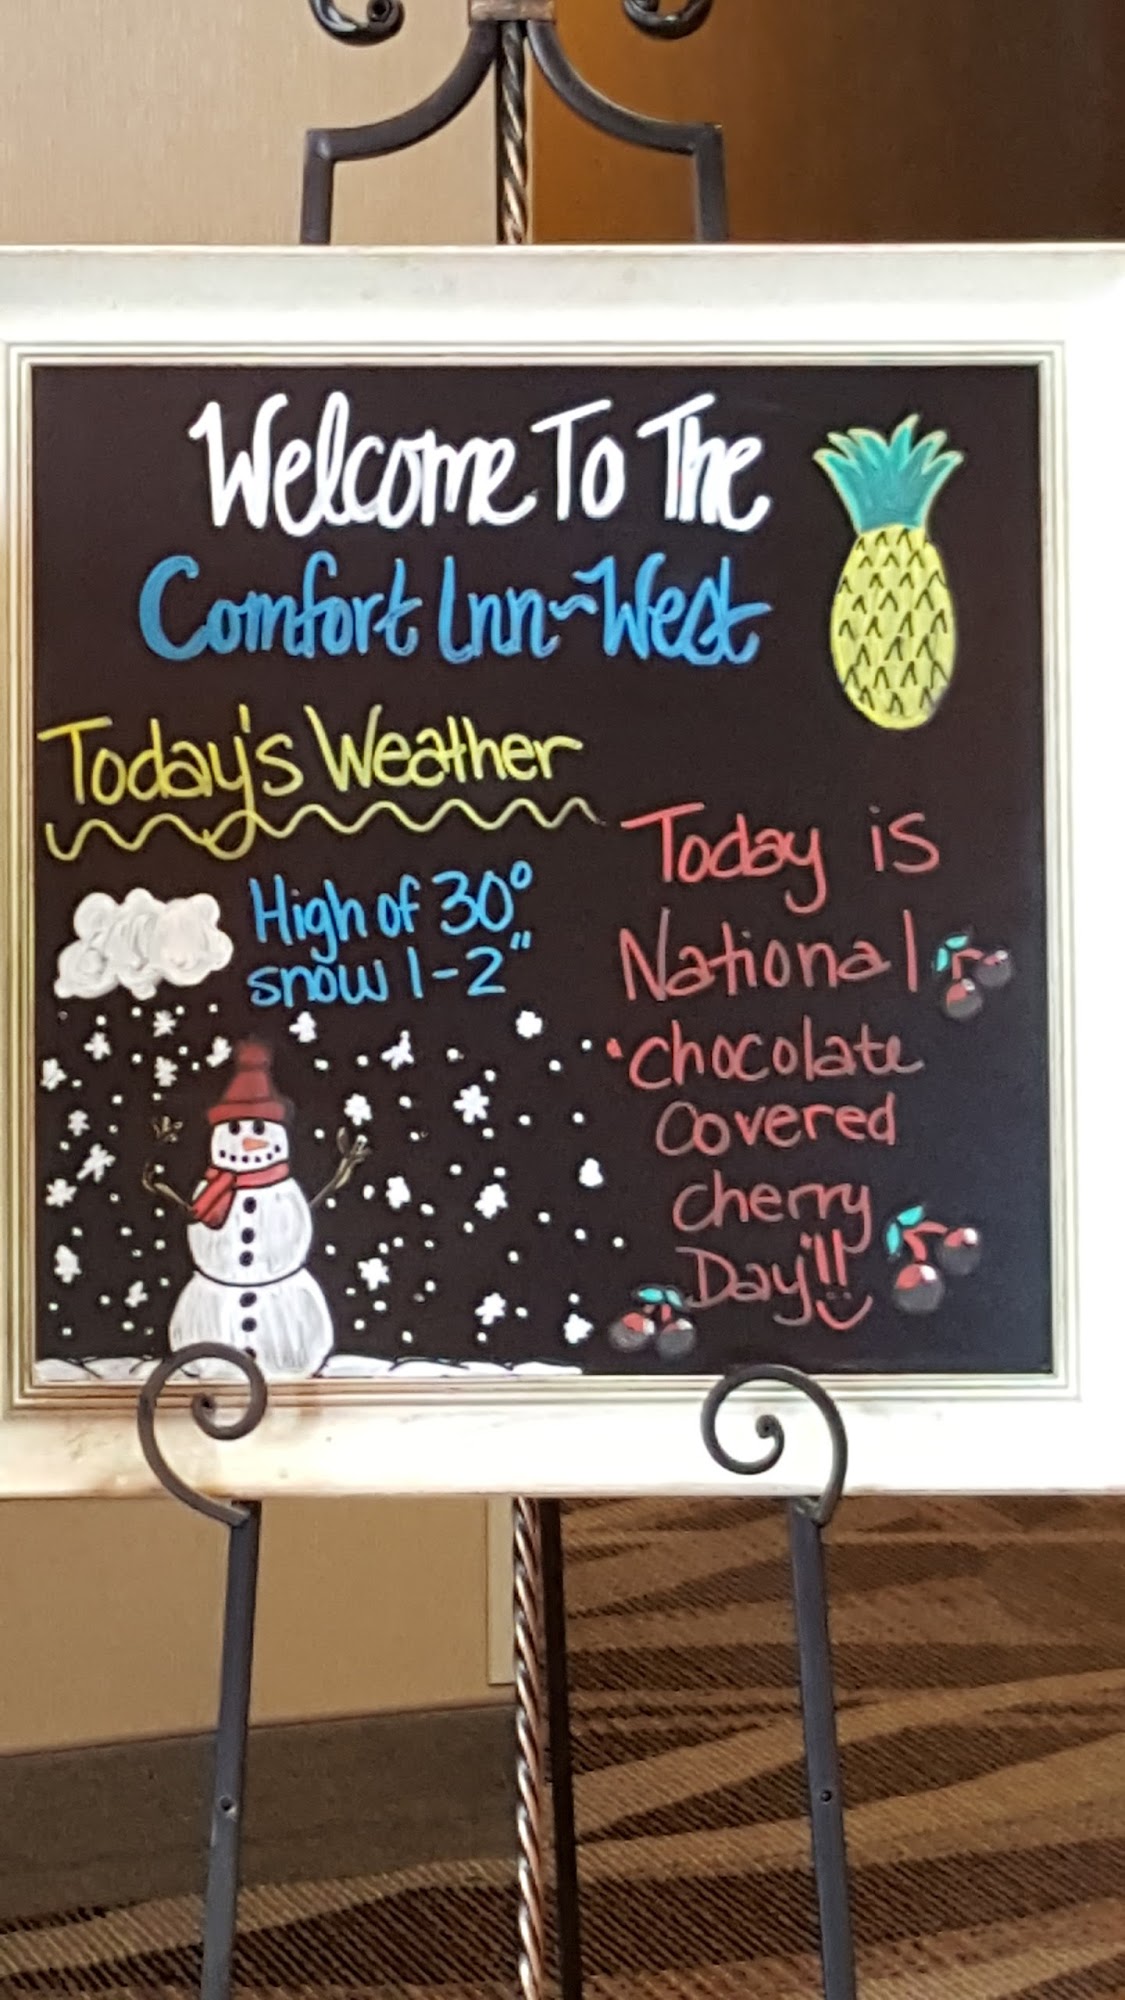 Welcome To The
Comfort Inn~West
Today's Weather
High of 30°
snow 1-2"
Today is
National
chocolate
Covered
cherry
Day!!